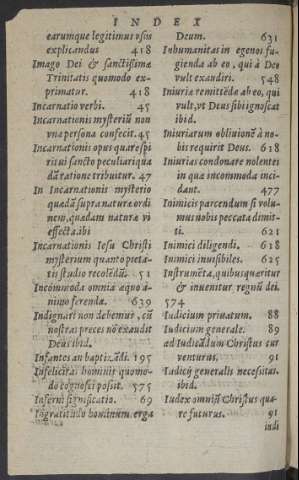 INDEX
earumque legitimus usus
explicandus 418
Imago Dei & sanctissimæ
Trinitatis quomodo ex-
primatur. 418
Incarnatio verbi. 45
Incarnationis mysteriũ non
vna persona confecit. 45
Incarnationis opus quare spi
ritui sancto peculiari qua
dã ratione tribuitur. 47
In Incarnationis mysterio
quædã supra naturæ ordi
nem, quædam naturæ vi
effecta. ibi
Incarnationis Iesu Christi
mysterium quanto pieta-
tis studio recolẽdũ. 51
Incõmoda omnia æquo a-
nimo ferenda. 639
Indignari non debemus, cũ
nostras preces nõ exaudit
Deus ibid.
Infantes an baptizãdi. 195
Infelicitas hominis quomo-
do cognosci possit. 575
Inferni significatio. 69
Ingratitudo hominum erga
Deum. 631
Inhumanitas in egenos fu-
gienda ab eo, qui à Deo
vult exaudiri. 548
Iniuriæ remittẽdæ ab eo, qui
vult, vt Deus sibi ignoscat
ibid.
Iniuriarum obliuionẽ à no-
bis requirit Deus. 618
Iniurias condonare nolentes
in quæ incommoda inci-
dant. 477
Inimicis parcendum si volu-
mus nobis peccata dimit-
ti. 621
Inimici diligendi. 618
Inimici inuisibiles. 625
Instrumẽta, quibus quæritur
& inuenitur regnũ dei.
574
Iudicium priuatum. 88
Iudicium generale. 89
ad Iudicãdum Christus sur
venturus. 91
Iudicij generalis necessitas.
ibid.
Iudex omniũ Christus qua-
re futurus. 91
iudi